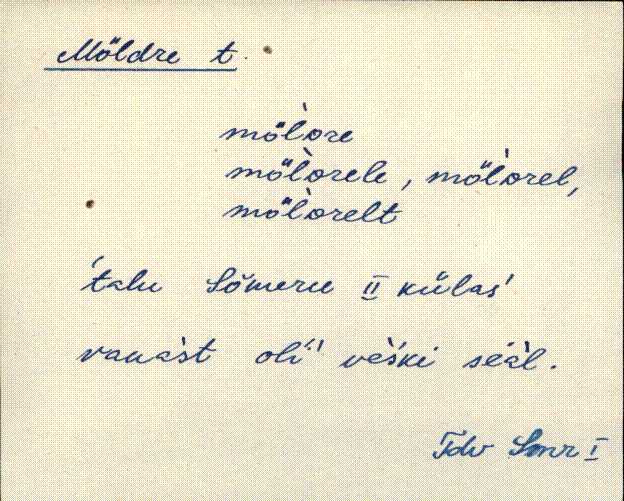 Möldre t.
möl̀dre
möl̀drele, möl̀drel,
möl̀drelt
'talu Sõmeru II külas'
vanàst oli' vèski seàl.
Tdv Smr I